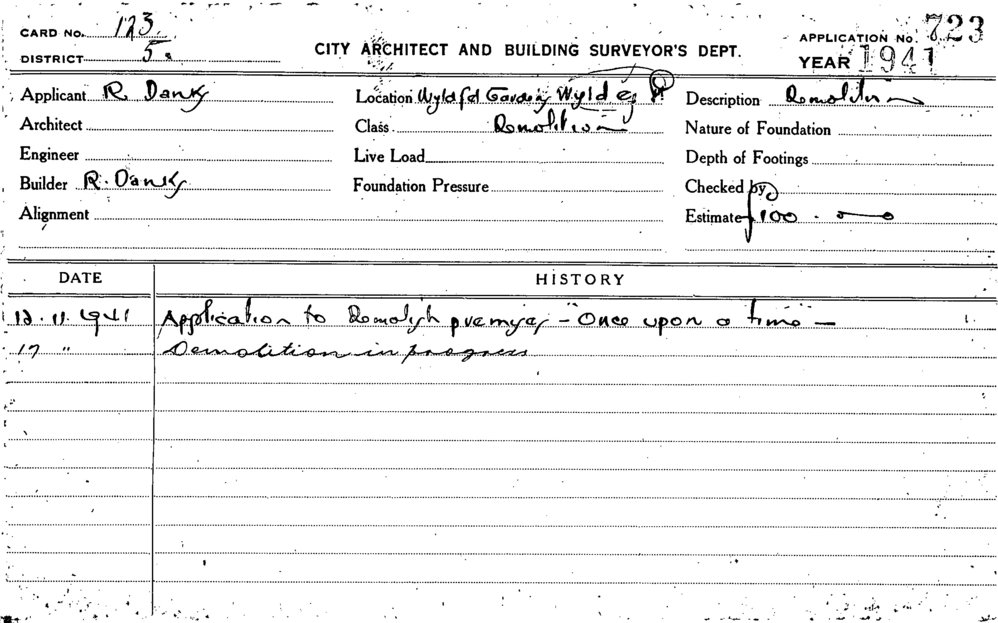 CARD No. 123.
DISTRICT 5.
CITY ARCHITECT AND BUILDING SURVEYOR'S DEPT.
APPLICATION No. 723
YEAR 1941
Applicant R Danks
Architect
Engineer
Builder R. Danks
Alignment
Location Gardens Wylde St
Class Demolition
Live Load
Foundation Pressure
Description Demolition
Nature of Foundation
Depth of Footings
Checked by
Estimate £100
DATE HISTORY
12.11.1941 Application to Demolish premises - "Once upon a time" -
17 " Demolition in progress